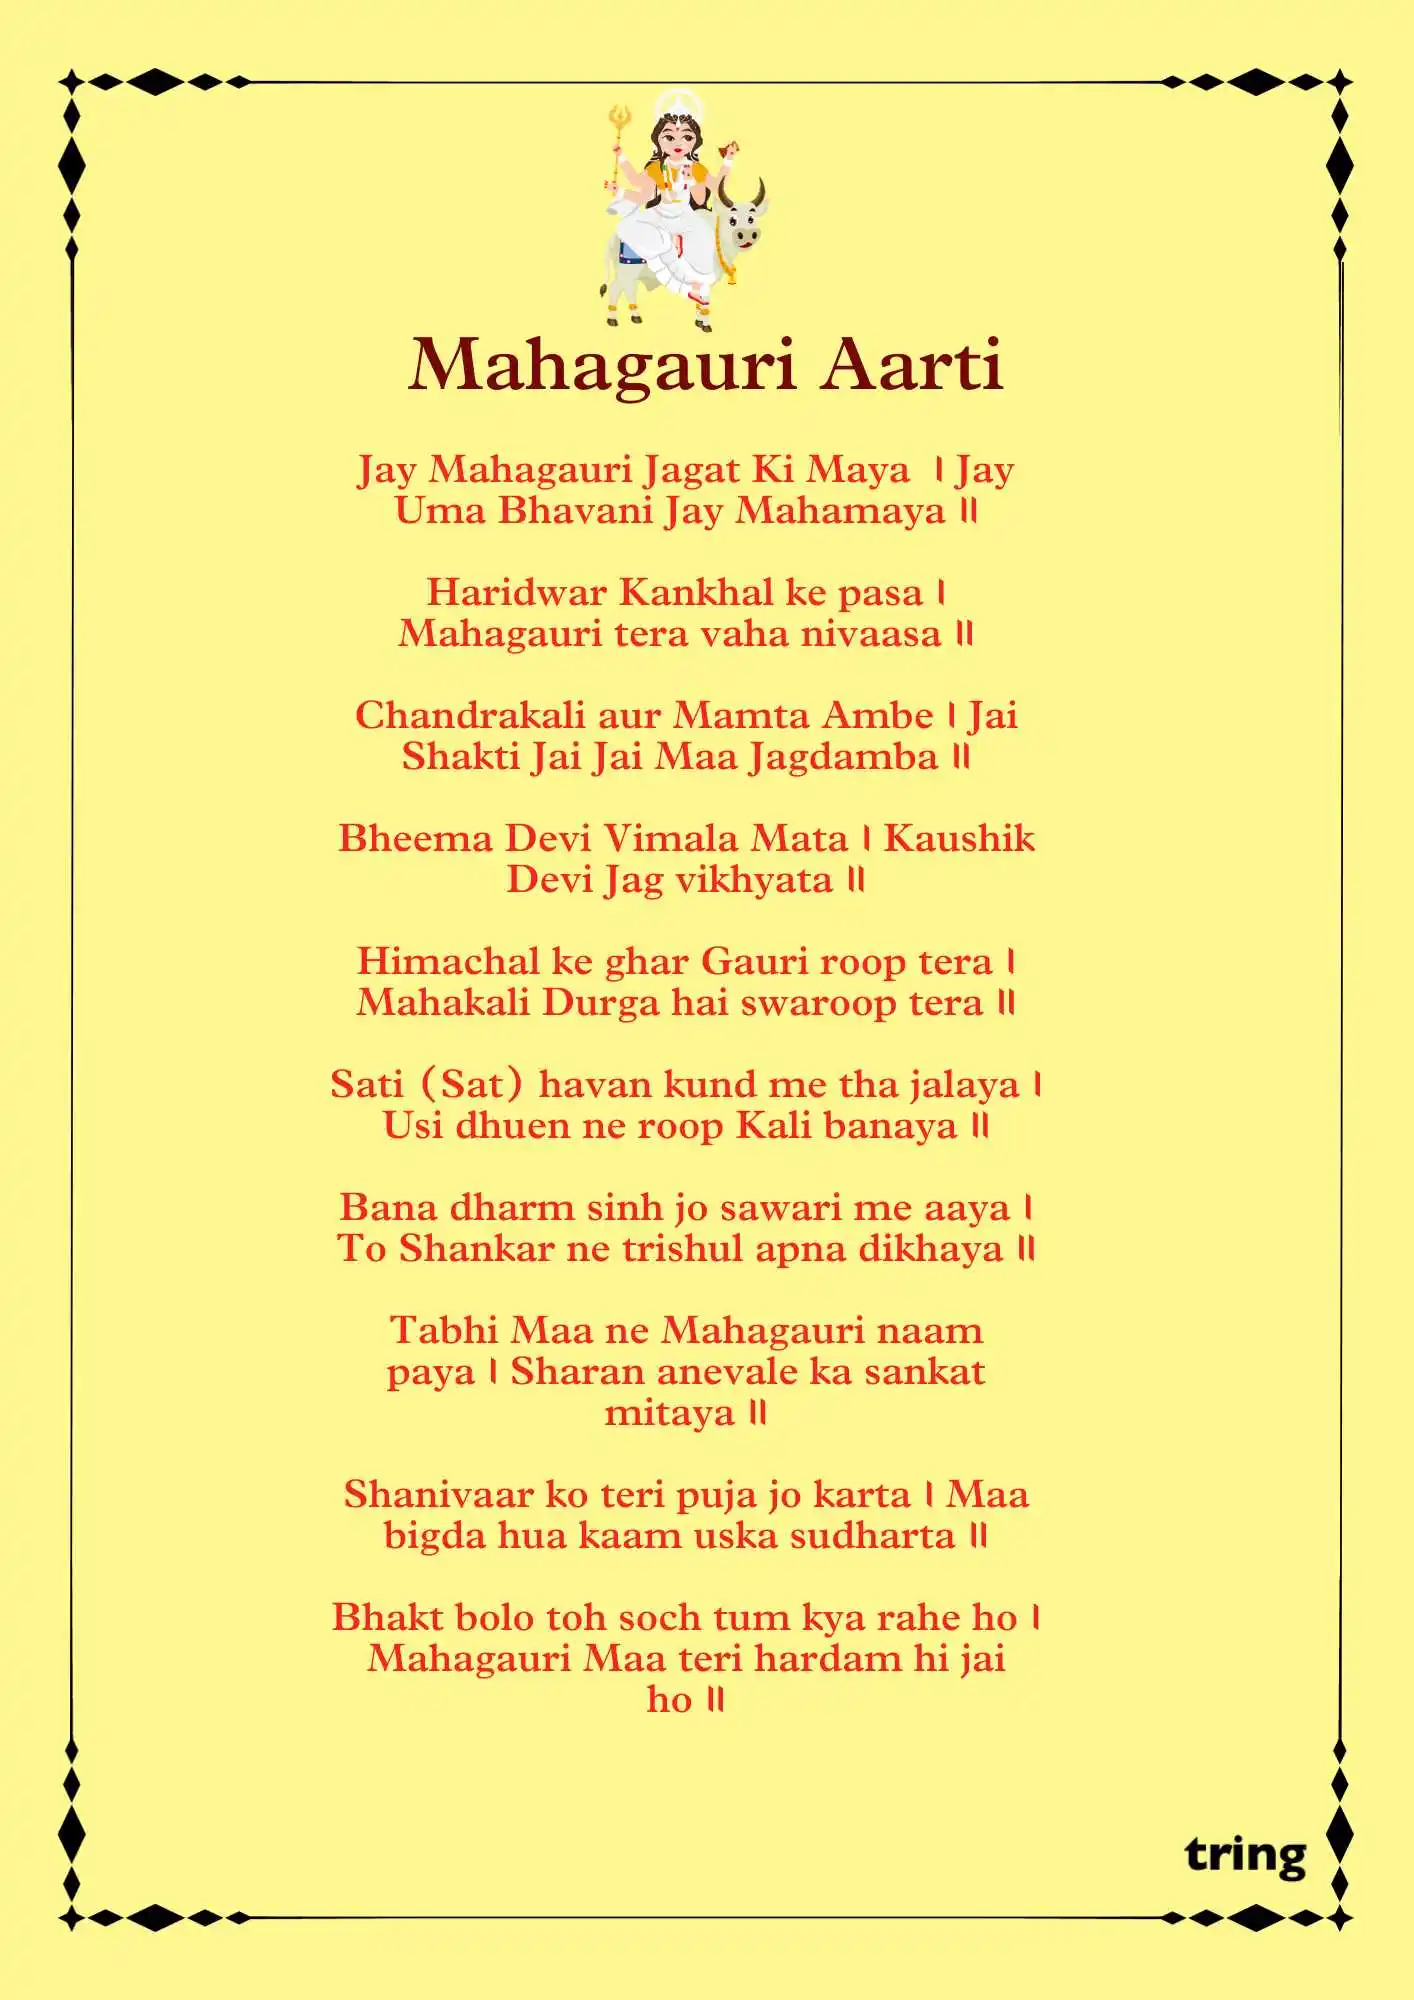 Mahagauri Aarti
Jay Mahagauri Jagat Ki Maya । Jay
Uma Bhavani Jay Mahamaya ॥
Haridwar Kankhal ke pasa ।
Mahagauri tera vaha nivaasa ॥
Chandrakali aur Mamta Ambe । Jai
Shakti Jai Jai Maa Jagdamba ॥
Bheema Devi Vimala Mata । Kaushik
Devi Jag vikhyata ॥
Himachal ke ghar Gauri roop tera ।
Mahakali Durga hai swaroop tera ॥
Sati (Sat) havan kund me tha jalaya ।
Usi dhuen ne roop Kali banaya ॥
Bana dharm sinh jo sawari me aaya ।
To Shankar ne trishul apna dikhaya ॥
Tabhi Maa ne Mahagauri naam
paya । Sharan anevale ka sankat
mitaya ॥
Shanivaar ko teri puja jo karta । Maa
bigda hua kaam uska sudharta ॥
Bhakt bolo toh soch tum kya rahe ho ।
Mahagauri Maa teri hardam hi jai
ho ॥
tring